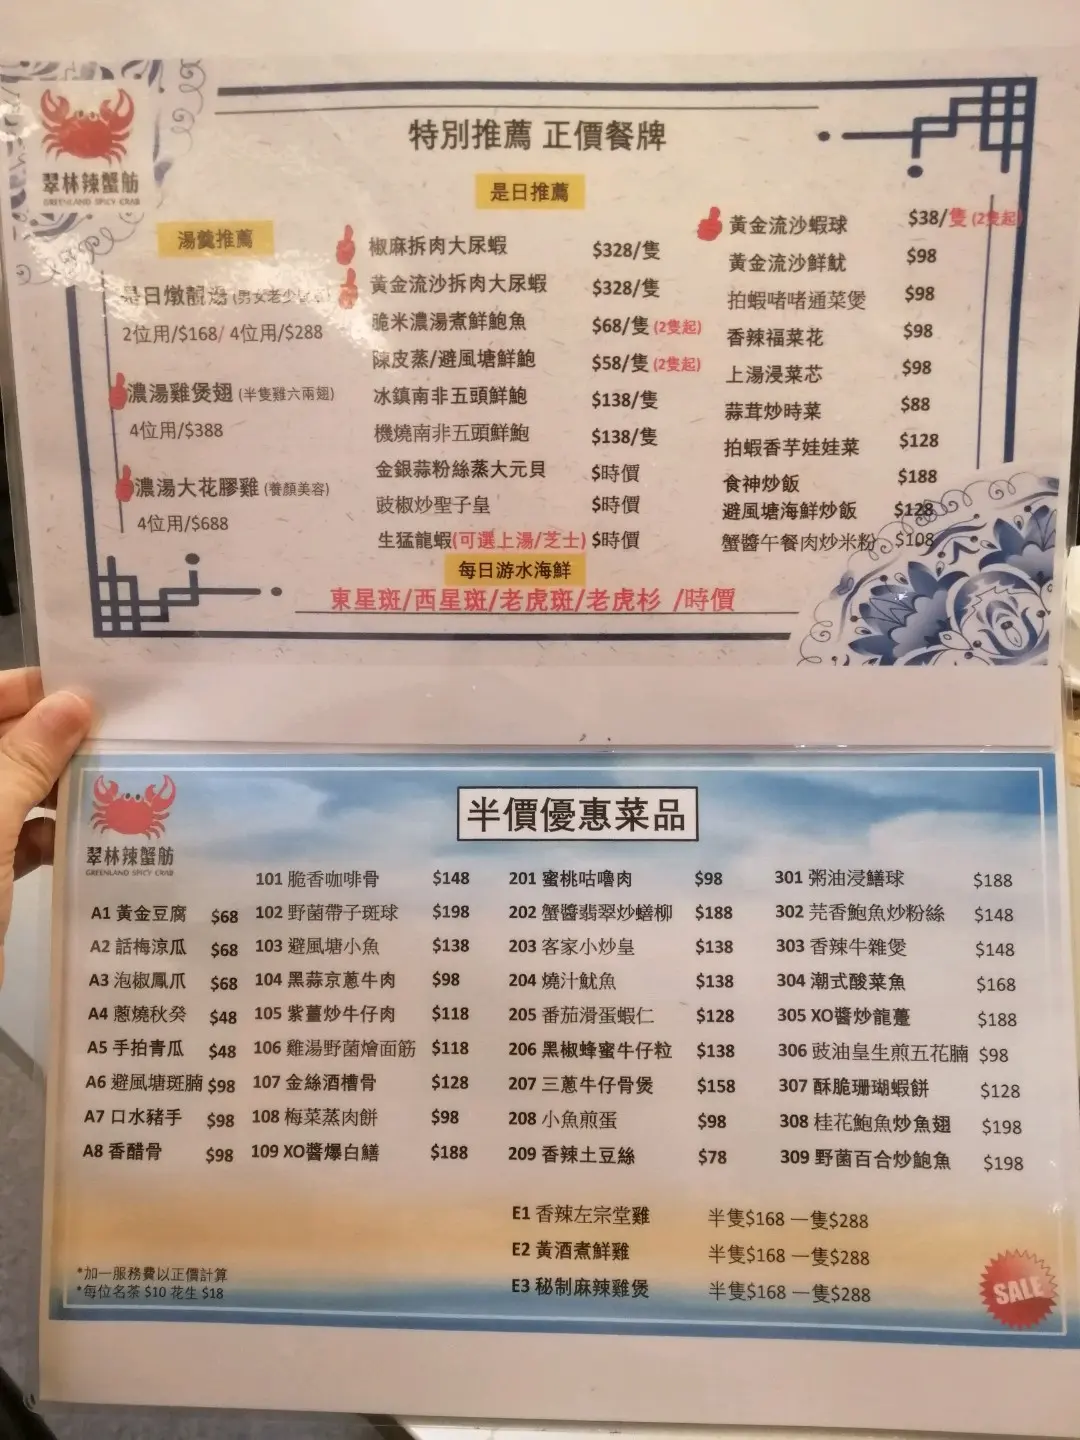 翠林辣蟹舫
GREENLAND SPICY CRAB
特別推薦 正價餐牌
湯羹推薦
是日燉靚湯 (男女老少
2位用/$168/ 4位用/$288
濃湯雞煲翅 (半隻雞六兩翅)
4位用/$388
濃湯大花膠雞 (養顏美容)
4位用/$688
是日推薦
椒麻拆肉大尿蝦 $328/隻
黃金流沙拆肉大尿蝦 $328/隻
脆米濃湯煮鮮鮑魚 $68/隻 (2隻起)
陳皮蒸/避風塘鮮鮑 $58/隻 (2隻起)
冰鎮南非五頭鮮鮑 $138/隻
機燒南非五頭鮮鮑 $138/隻
金銀蒜粉絲蒸大元貝 $時價
豉椒炒聖子皇 $時價
生猛龍蝦(可選上湯/芝士) $時價
黃金流沙蝦球 $38/隻 (2隻起)
黃金流沙鮮魷 $98
拍蝦啫啫通菜煲 $98
香辣福菜花 $98
上湯浸菜芯 $98
蒜茸炒時菜 $88
拍蝦香芋娃娃菜 $128
食神炒飯 $188
避風塘海鮮炒飯 $128
蟹醬午餐肉炒米粉 $108
每日游水海鮮
東星斑/西星斑/老虎斑/老虎杉 /時價
翠林辣蟹舫
GREENLAND SPICY CRAB
半價優惠菜品
A1 黃金豆腐 $68
A2 話梅涼瓜 $68
A3 泡椒鳳爪 $68
A4 蔥燒秋癸 $48
A5 手拍青瓜 $48
A6 避風塘斑腩 $98
A7 口水豬手 $98
A8 香醋骨 $98
101 脆香咖啡骨 $148
102 野菌帶子斑球 $198
103 避風塘小魚 $138
104 黑蒜京蔥牛肉 $98
105 紫薑炒牛仔肉 $118
106 雞湯野菌燴面筋 $118
107 金絲酒槽骨 $128
108 梅菜蒸肉餅 $98
109 XO醬爆白鱔 $188
201 蜜桃咕嚕肉 $98
202 蟹醬翡翠炒蟮柳 $188
203 客家小炒皇 $138
204 燒汁魷魚 $138
205 番茄滑蛋蝦仁 $128
206 黑椒蜂蜜牛仔粒 $138
207 三蔥牛仔骨煲 $158
208 小魚煎蛋 $98
209 香辣土豆絲 $78
301 粥油浸鱔球 $188
302 芫香鮑魚炒粉絲 $148
303 香辣牛雜煲 $148
304 潮式酸菜魚 $168
305 XO醬炒龍躉 $188
306 豉油皇生煎五花腩 $98
307 酥脆珊瑚蝦餅 $128
308 桂花鮑魚炒魚翅 $198
309 野菌百合炒鮑魚 $198
E1 香辣左宗堂雞 半隻$168 一隻$288
E2 黃酒煮鮮雞 半隻$168 一隻$288
E3 秘制麻辣雞煲 半隻$168 一隻$288
*加一服務費以正價計算
*每位名茶 $10 花生 $18
SALE